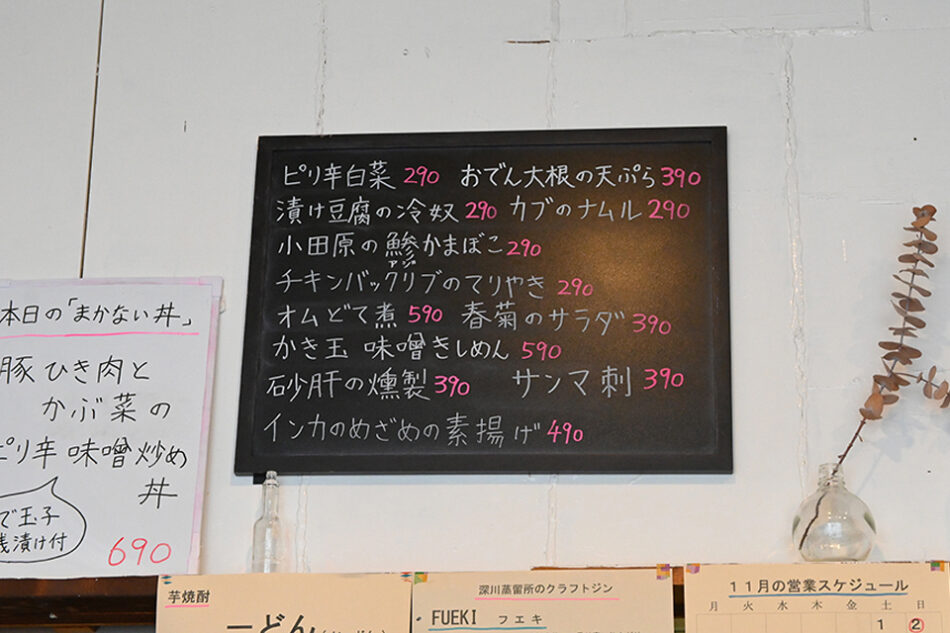 ピリ辛白菜 290 おでん大根の天ぷら 390
漬け豆腐の冷奴 290 カブのナムル 290
小田原の鯵かまぼこ 290
アジ
チキンバックリブのてりやき 290
オムどて煮 590 春菊のサラダ 390
かき玉 味噌きしめん 590
砂肝の燻製 390 サンマ刺 390
インカのめざめの素揚げ 490
本日の「まかない丼」
豚ひき肉と
かぶ菜の
ピリ辛味噌炒め
丼
で玉子
浅漬け付
690
芋焼酎
一どん
深川蒸留所のクラフトジン
FUEKI フエキ
11月の営業スケジュール
月 火 水 木 金 土 日
1 2